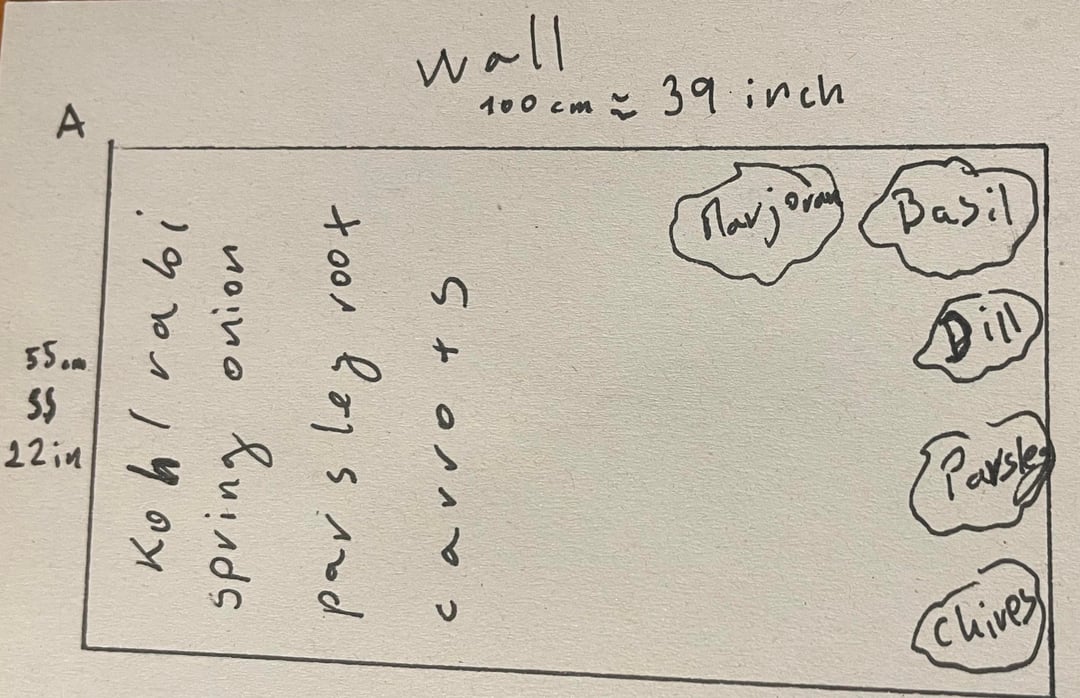 Wall
100 cm ≈ 39 inch
A
55cm
≈
22in
Kohlrabi
spring onion
parsley root
carrots
Marjoram
Basil
Dill
Parsley
Chives